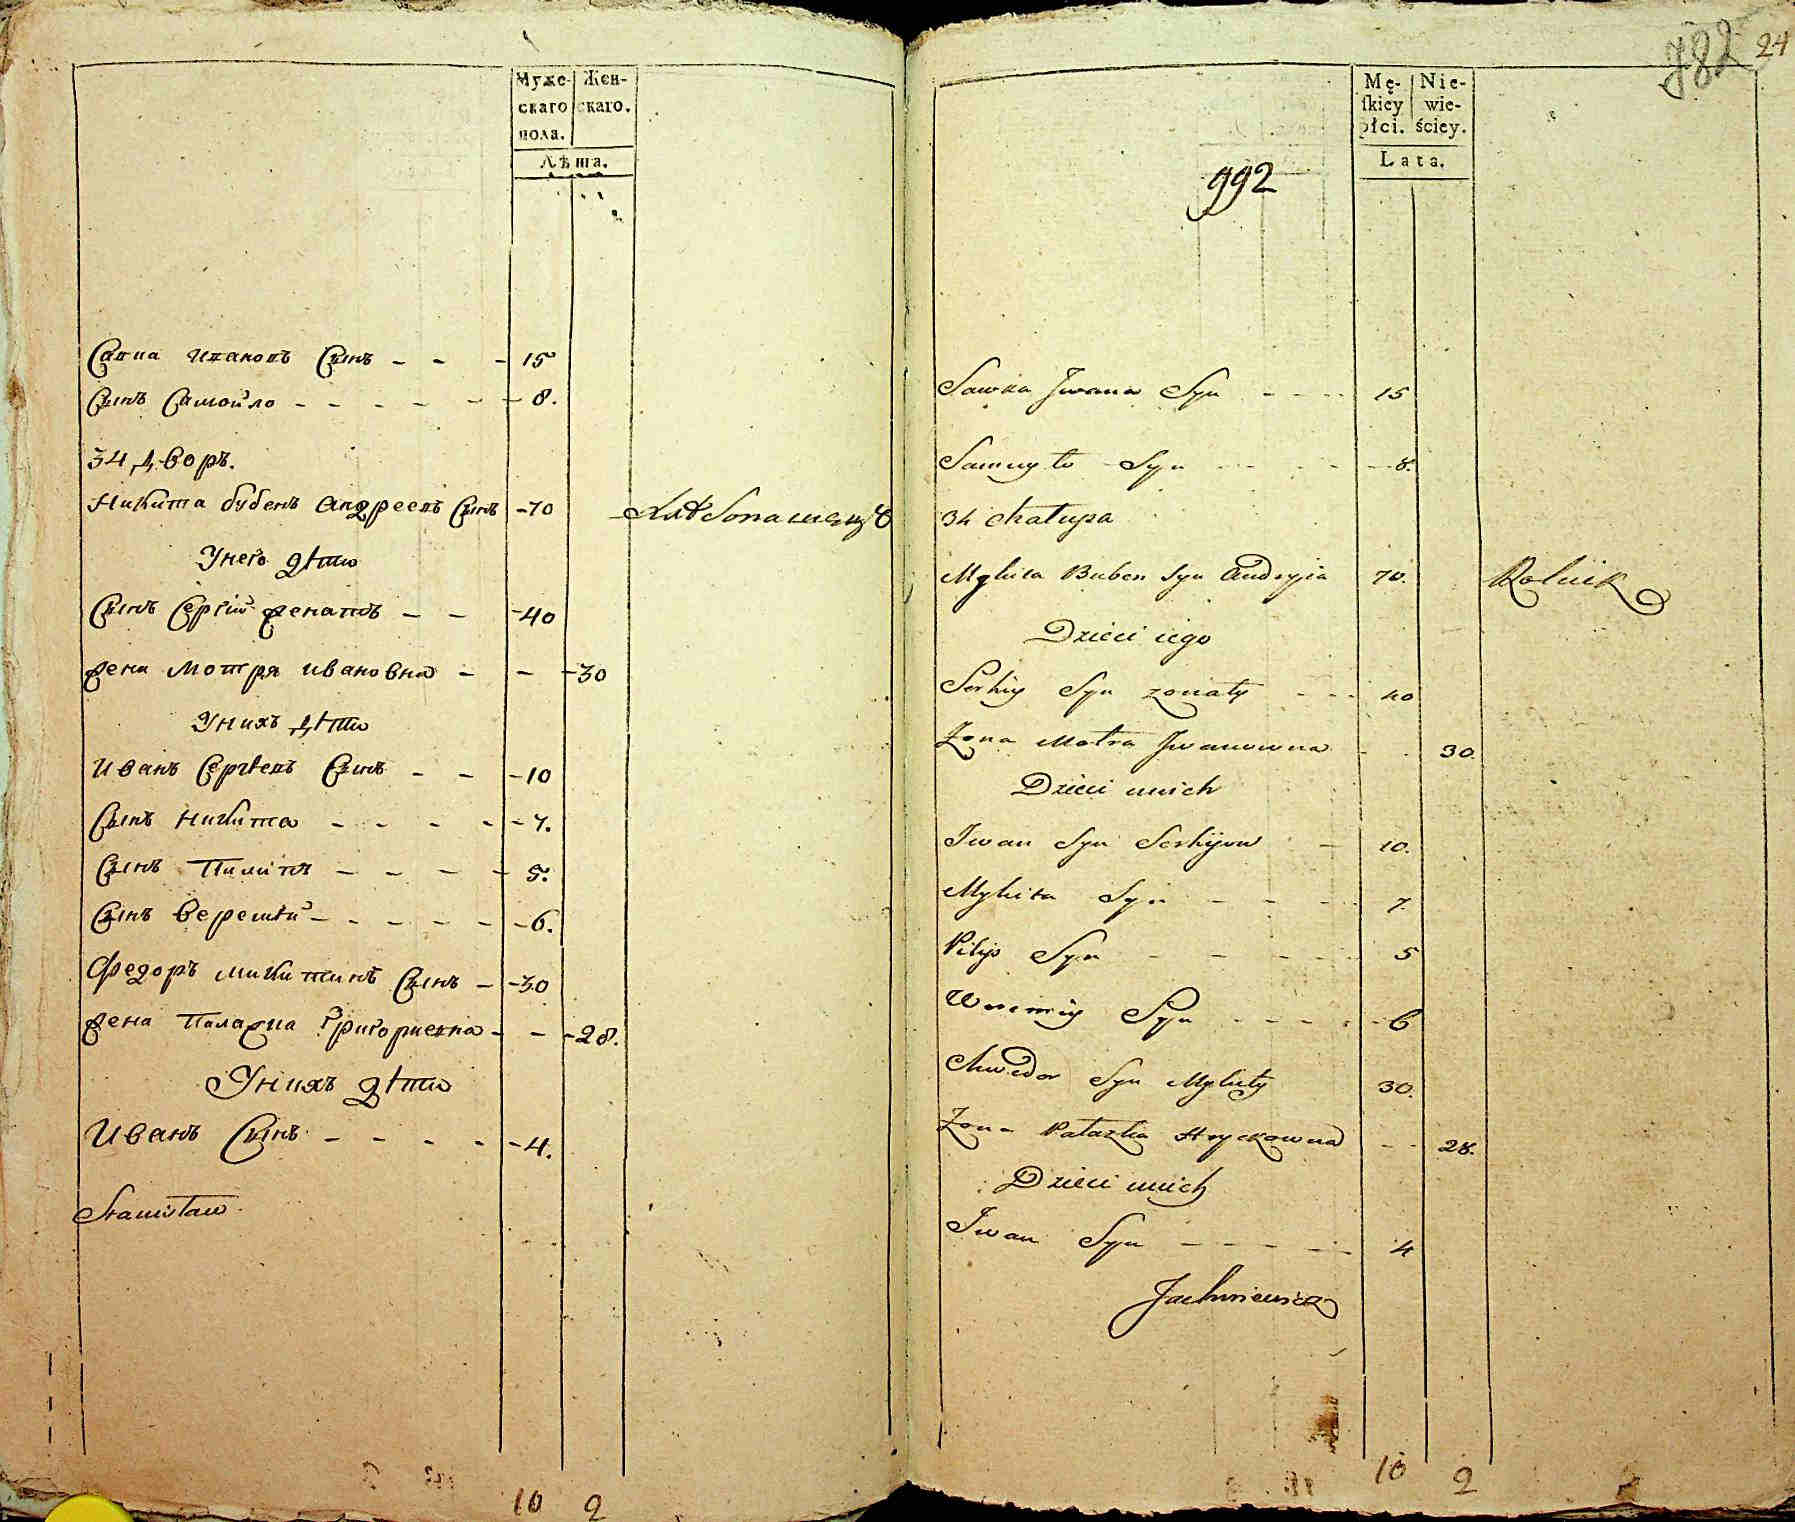 Муже- Жен-
скаго скаго.
пола.
Лѣта.
Савка Ивановъ Сынъ - - - 15
Сынъ Самойло - - - - - - 8.
34 дворъ.
Никита бубенъ Андреевъ Сынъ - 70 Хлѣбопашецъ
Унего дѣти
Сынъ Сергій женатъ - - - 40
жена мотря ивановна - - - 30
Унихъ дѣти
Иванъ Сергѣевъ Сынъ - - - 10
Сынъ Никита - - - - - 7.
Сынъ Пилипъ - - - - 5.
Сынъ Веремѣй - - - - - - 6.
Федоръ микитинъ Сынъ - - 30
жена Палажка Григориевна - - - 28.
Унихъ дѣти
Иванъ Сынъ - - - - - 4.
Stanisław
10 2
782 24
Mę- Nie-
ſkiey wie-
płci. ściey.
Lata.
992
Sawka Jwana Syn - - - - 15
Samuyło Syn - - - - - 8.
34 chałupa
Mykita Buben Syn Andryia 70. Rolnik
Dzieci iego
Serhiy Syn zonaty - - - 40
Zona Motra Jwanowna - - 30.
Dzieci unich
Jwan Syn Serhijow - 10.
Mykita Syn - - - - 7.
Pilip Syn - - - - - 5
Weremiy Syn - - - - - 6
Chwedor Syn Mykity 30.
Zona Pałazka Hryckowna - - 28.
Dzieci unich
Jwan Syn - - - - - 4
Jachniewicz
10 2